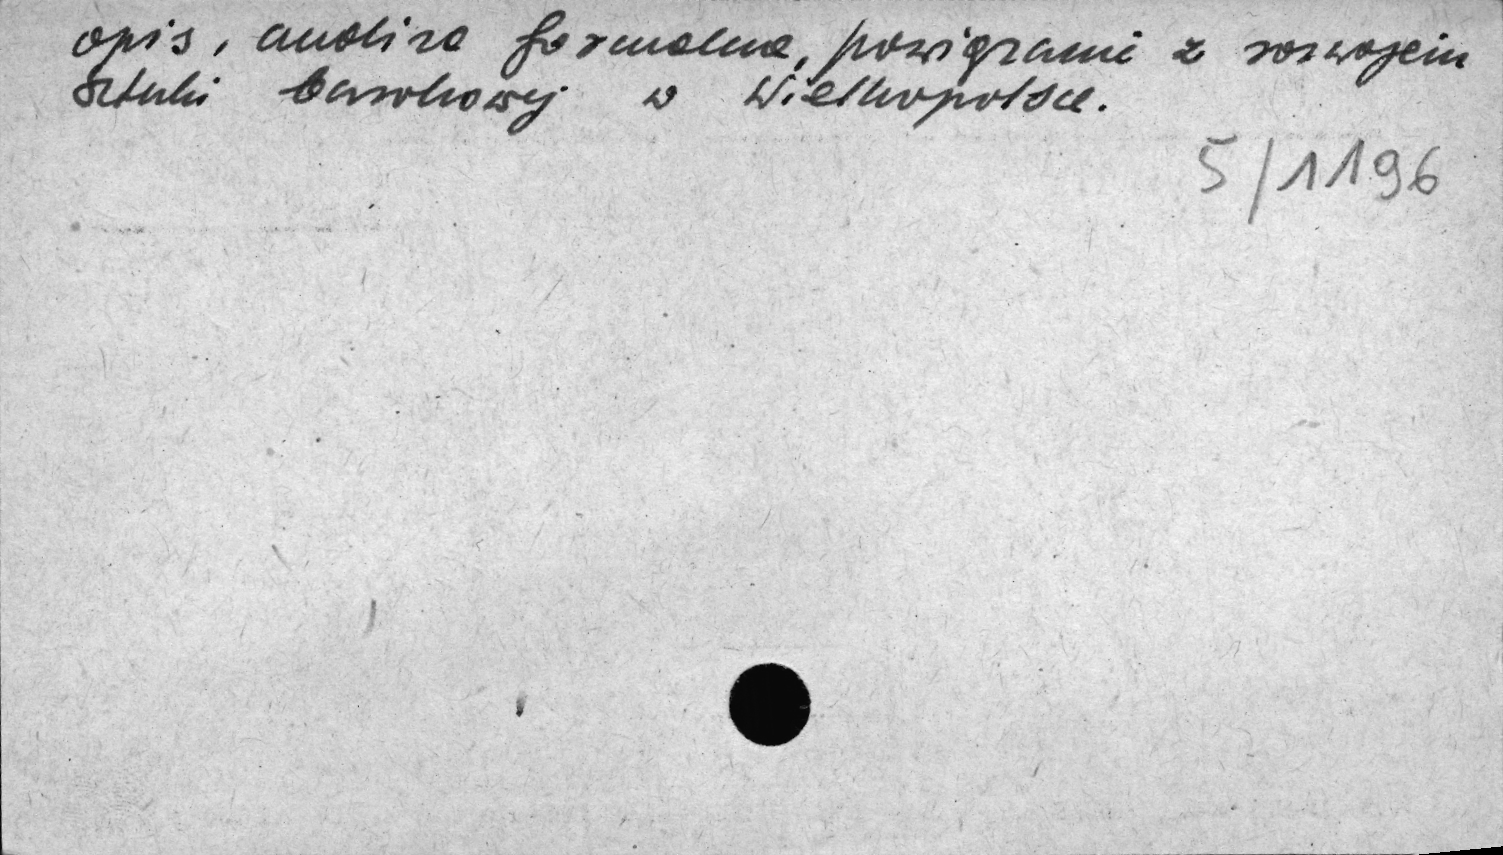 opis, analiza formalna, powiązanie z rozwojem
sztuki barokowej w Wielkopolsce.
5/1196